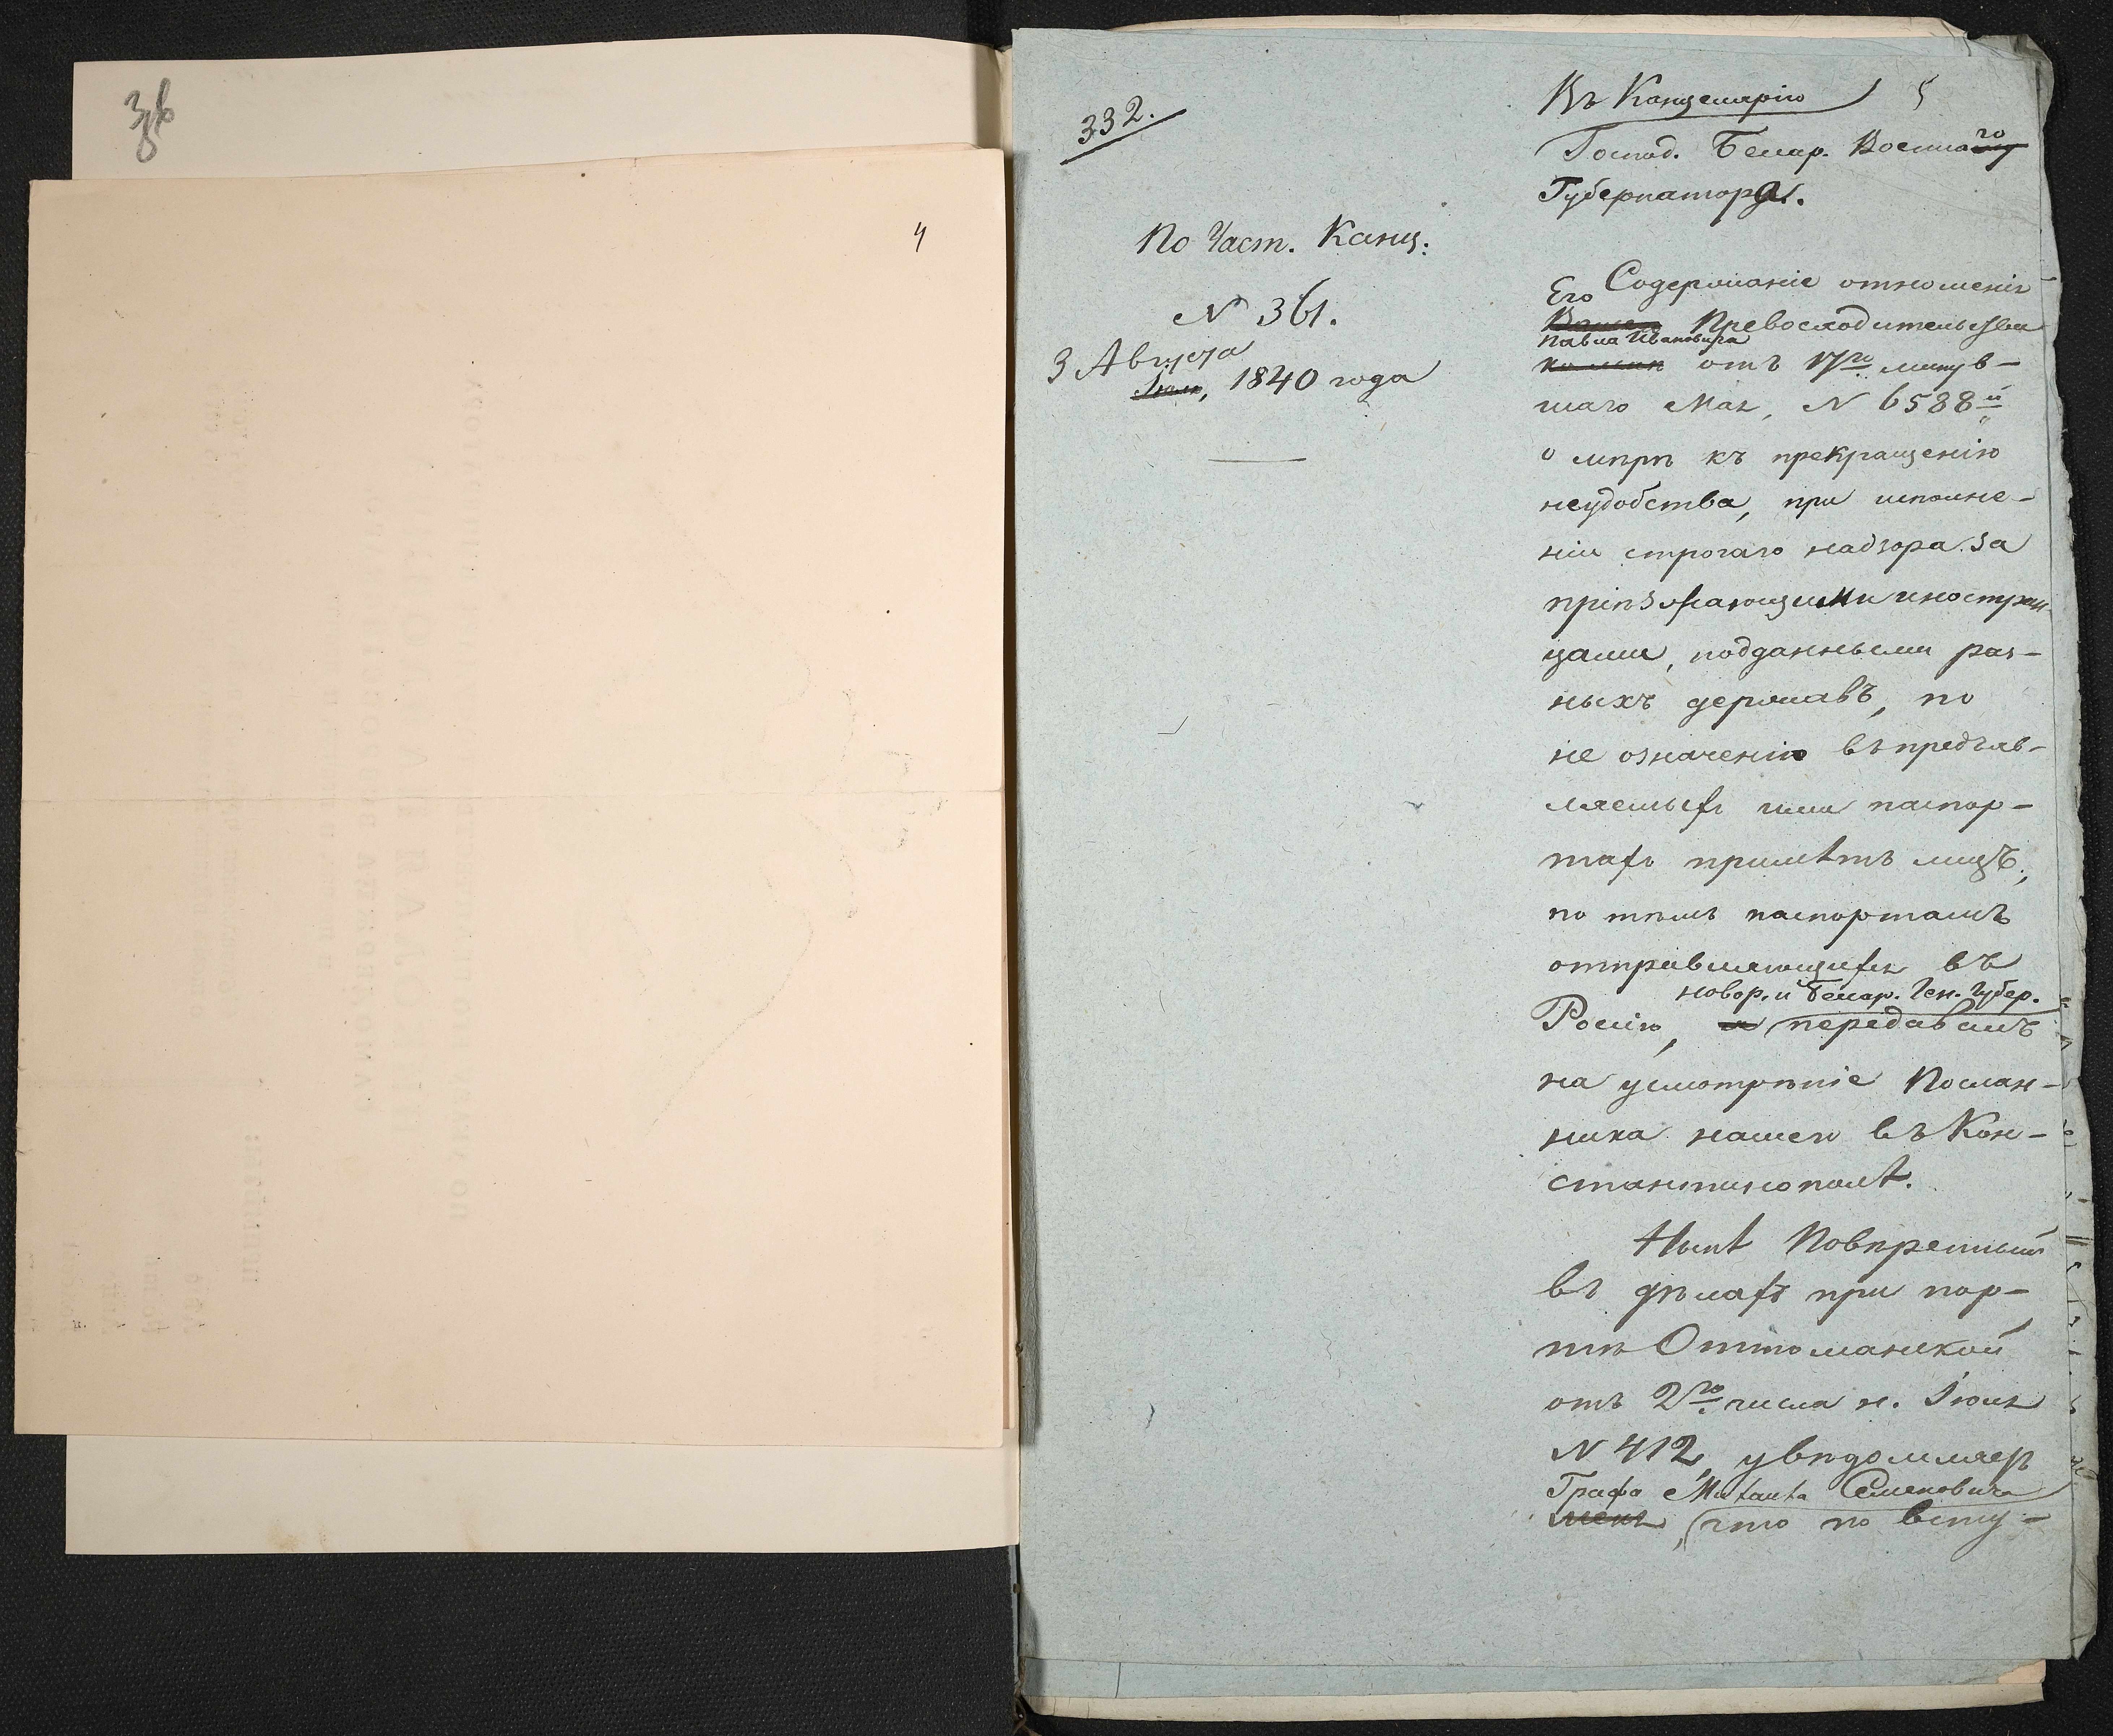 4
332.
По Част. Канц:
N 361.
3 Августа
Іюля, 1840 года
Въ Канцелярію 5
Господ. Бессар. Военнаго
Губернатора.
Содержаніе отношенія
Его
Вашего Превосходительства
Павла Ивановича
ко мнѣ отъ 17го минув-
шаго Мая, N 6588й
о мѣрѣ къ прекращенію
неудобства, при исполне-
ніи строгаго надзора за
пріѣзжающими иностран-
цами, подданными раз-
ныхъ державъ, по
не означенію въ предъяв-
ляемыхъ ими паспор-
тахъ примѣтъ лицъ,
по тѣмъ паспортамъ
отправляющихся въ
Новор. и Бессар. Ген. Губер.
Россію, я передавалъ
на усмотрѣніе Послан-
ника нашего въ Кон-
стантинополѣ.
Нынѣ Повѣренный
въ дѣлахъ при пор-
тѣ Оттоманской
отъ 2го числа н. Іюля
N 412, увѣдомляетъ
Графа Михаила Семеновича
меня, что по всту-